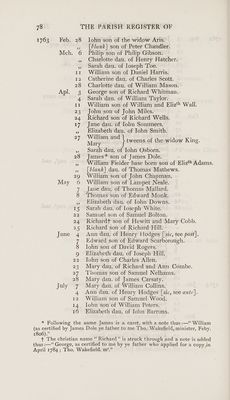 78 THE PARISH REGISTER OF
1763 Feb. 28 John son of the widow Aris.
„ [blank] son of Peter Chandler.
Mch. 6 Philip son of Philip Gibson.
„ Charlotte dau. of Henry Hatcher.
„ Sarah dau. of Joseph Toe.
11 William son of Daniel Harris.
12 Catherine dau. of Charles Scott.
28 Charlotte dau. of William Mason.
Apl. 3 George son of Richard Whitman.
4 Sarah dau. of William Taylor.
11 William son of William and Elizth Wall.
23 John son of John Miles.
24 Richard son of Richard Wells.
17 Jane dau. of John Soumners.
„ Elizabeth dau. of John Smith.
27 William and } tweens of the widow King.
Mary
„ Sarah dau. of John Osborn.
28 James* son of James Dole.
„ William Fielder base born son of Elizth Adams.
„ [blank] dau. of Thomas Mathews.
29 William son of John Chapman.
May 6 William son of Lampet Neale.
7 Jane dau. of Thomas Mallard.
8 Thomas son of Edward Monk.
„ Elizabeth dau. of John Downs.
15 Sarah dau. of Joseph White.
22 Samuel son of Samuel Bolton.
24 Richard† son of Hewitt and Mary Cobb.
25 Richard son of Richard Hill.
June 4 Ann dau. of Henry Hodges [sic, see post].
7 Edward son of Edward Scarborough.
8 John son of David Rogers.
9 Elizabeth dau. of Joseph Hill.
22 John son of Charles Allen.
23 Mary dau. of Richard and Ann Combe.
27 Thomas son of Samuel Nelhams.
28 Mary dau. of James Carsaty.
July 7 Mary dau. of William Collins.
4 Ann dau. of Henry Hodges [sic, see ante].
12 William son of Samuel Wood.
14 John son of William Peters.
16 Elizabeth dau. of John Barrons.
* Following the name James is a caret, with a note thus:—"William
(as certified by James Dole ye father to me Tho. Wakefield, minister, Feby.
1806)."
† The christian name "Richard" is struck through and a note is added
thus:—"George, as certified to me by ye father who applied for a copy in
April 1784; Tho. Wakefield, mr."